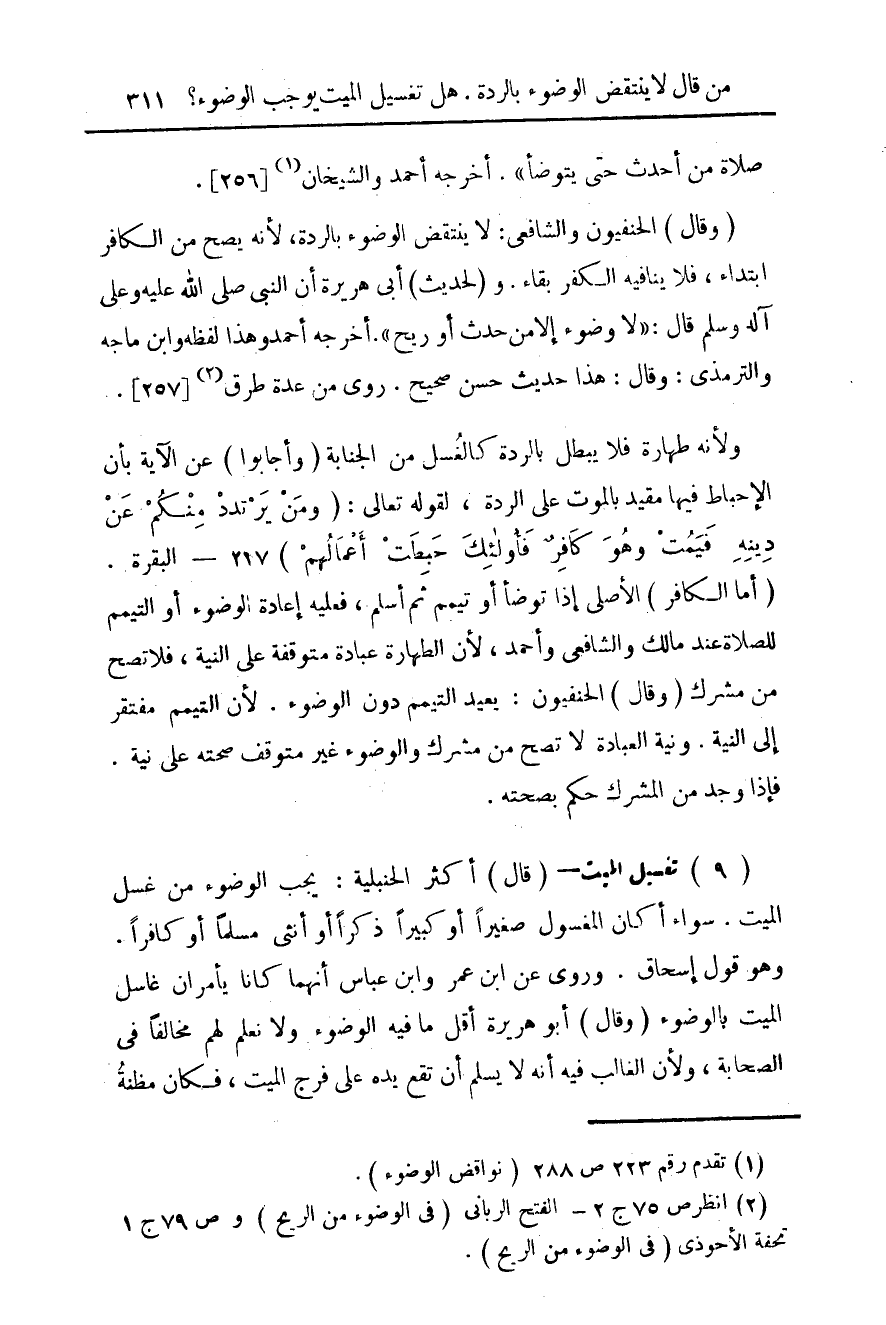 من قال لا ينتقض الوضوء بالردة . هل تغسيل الميت يوجب الوضوء؟ ٣١١
صلاة من أحدث حتى يتوضأ» . أخرجه أحمد والشيخان(١) [٢٥٦] .
( وقال ) الحنفيون والشافعى: لا ينتقض الوضوء بالردة، لأنه يصح من الكافر
ابتداء ، فلا ينافيه الكفر بقاء . و (لحديث) أبى هريرة أن النبى صلى الله عليه وعلى
آله وسلم قال :«لا وضوء إلا من حدث أو ريح».أخرجه أحمد وهذا لفظه وابن ماجه
والترمذى : وقال : هذا حديث حسن صحيح . روى من عدة طرق(٢) [٢٥٧] .
ولأنه طهارة فلا يبطل بالردة كالغُسل من الجنابة ( وأجابوا ) عن الآية بأن
الإحباط فيها مقيد بالموت على الردة ، لقوله تعالى : ( ومَنْ يَرْتدد مِنْكُمْ عَنْ
دِينِهِ فَيَمُتْ وهُوَ كَافِرٌ فَأُولٰئِكَ حَبِطَتْ أَعْمَالُهمْ ) ٢١٧ — البقرة .
( أما الكافر ) الأصلى إذا توضأ أو تيمم ثم أسلم ، فعليه إعادة الوضوء أو التيمم
للصلاة عند مالك والشافعى وأحمد ، لأن الطهارة عبادة متوقفة على النية ، فلا تصح
من مشرك ( وقال ) الحنفيون : يعيد التيمم دون الوضوء . لأن التيمم مفتقر
إلى النية . ونية العبادة لا تصح من مشرك والوضوء غير متوقف صحته على نية .
فإذا وجد من المشرك حكم بصحته .
( ٩ ) تغسيل الميت — ( قال ) أكثر الحنبلية : يجب الوضوء من غسل
الميت . سواء أكان المغسول صغيراً أو كبيراً ذكراً أو أنثى مسلماً أو كافراً .
وهو قول إسحاق . وروى عن ابن عمر وابن عباس أنهما كانا يأمران غاسل
الميت بالوضوء ( وقال ) أبو هريرة أقل ما فيه الوضوء ولا نعلم لهم مخالفاً فى
الصحابة ، ولأن الغالب فيه أنه لا يسلم أن تقع يده على فرج الميت ، فكان مظنةُ
(١) تقدم رقم ٢٢٣ ص ٢٨٨ ( نواقض الوضوء ) .
(٢) انظر ص ٧٥ ج ٢ – الفتح الربانى ( فى الوضوء من الريح ) و ص ٧٩ ج ١
تحفة الأحوذى ( فى الوضوء من الريح ) .